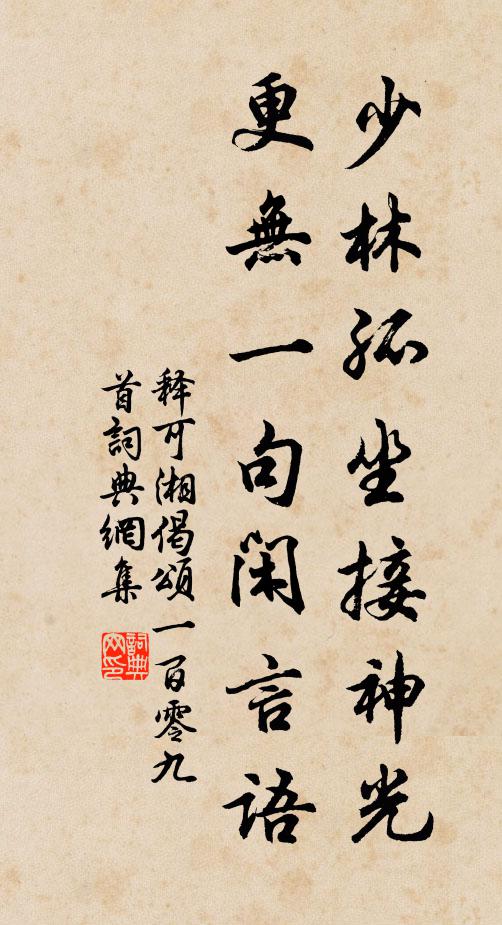 少林孤坐接神光
更無一句閑言語
释可湘偈頌一百零九
首詞典網集
詞典网印